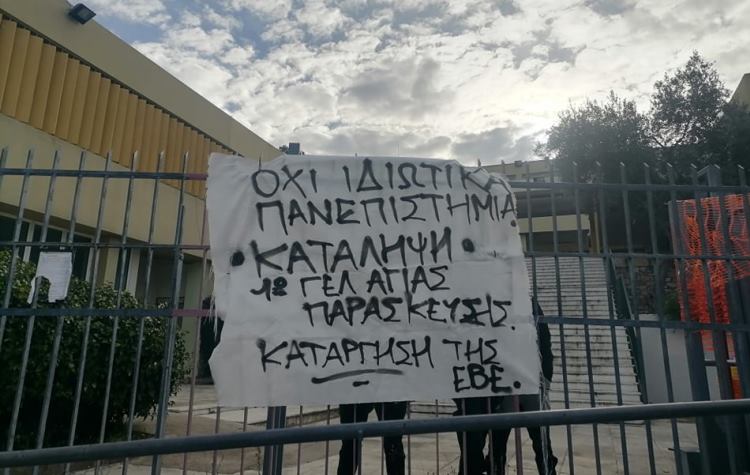 ΟΧΙ ΙΔΙΩΤΙΚΑ
ΠΑΝΕΠΙΣΤΗΜΙΑ.
• ΚΑΤΑΛΗΨΗ •
1º ΓΕΛ ΑΓΙΑΣ
ΠΑΡΑΣΚΕΥΗΣ.
ΚΑΤΑΡΓΗΣΗ ΤΗΣ
ΕΒΕ.